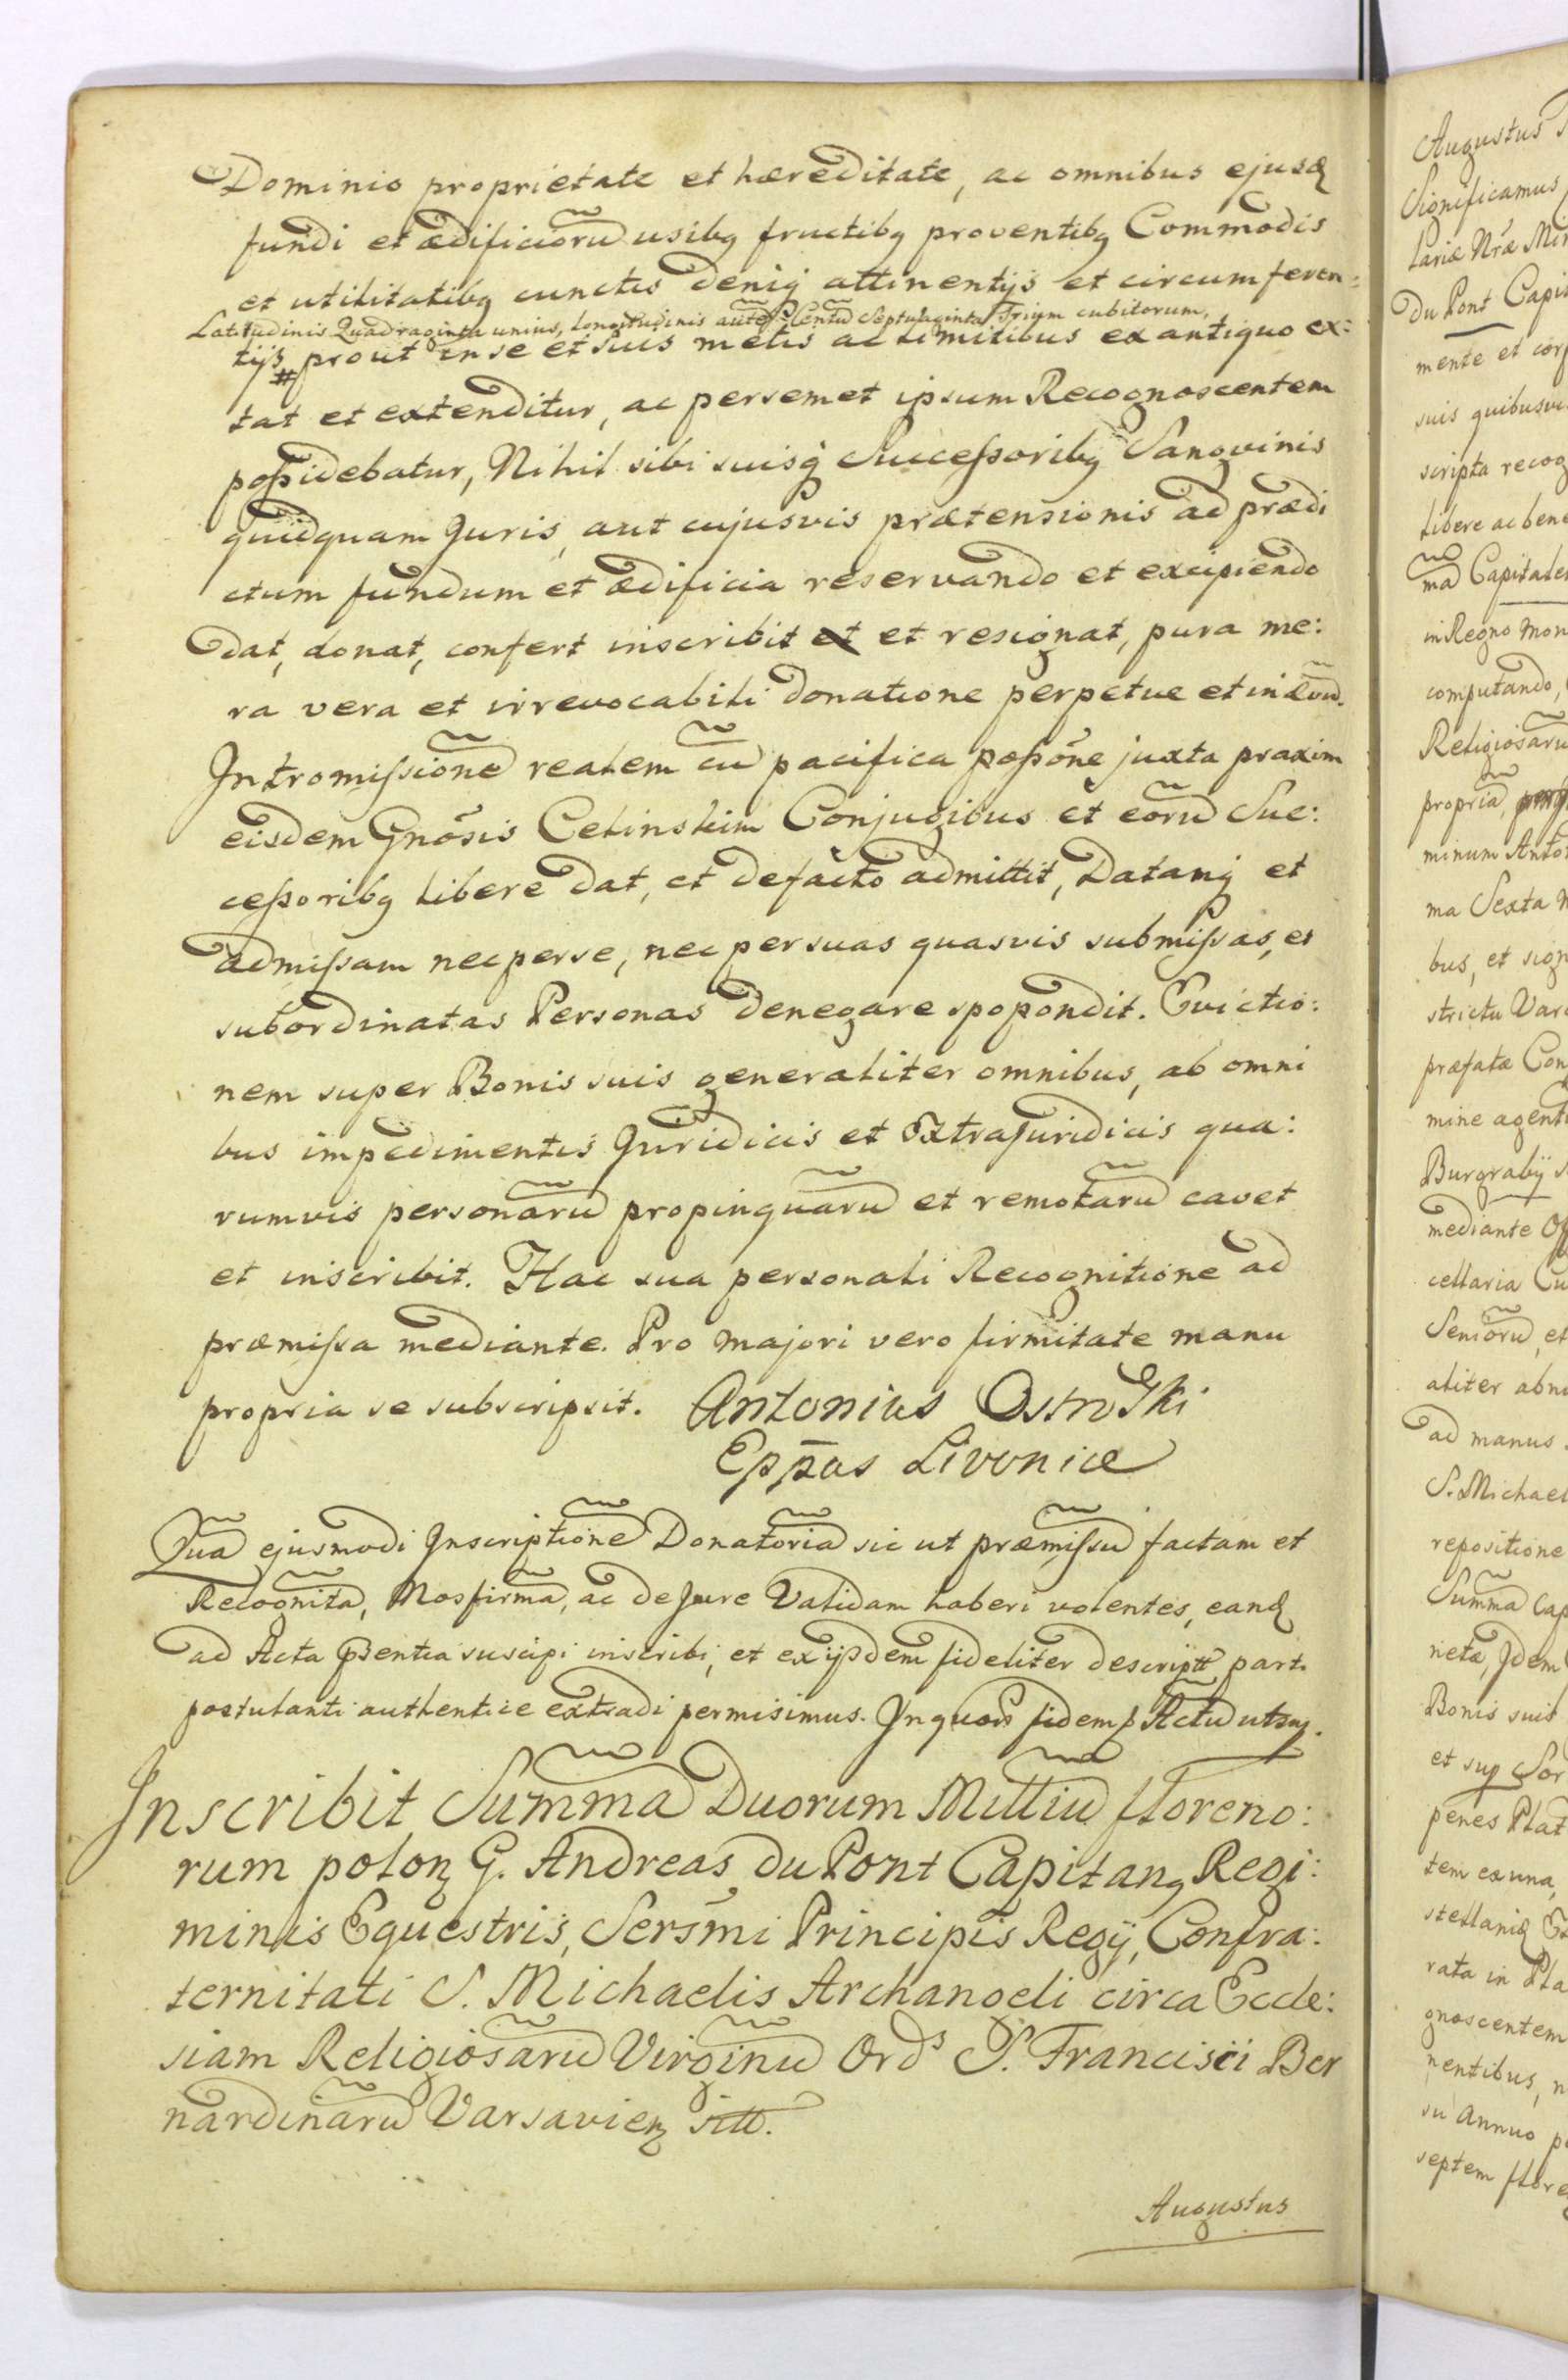 Dominio proprietate et hæreditate, ac omnibus ejusđ
fundi et ædificiorũ usibꝫ fructibꝫ proventibꝫ Commodis
et utilitatibꝫ cunctis deniq́ attinentijs et circumferen=
Latitudinis Quadraginta unius, Longitudinis autẽ Centũ Septuaginta Trium cubitorum,
tijs # prout in se et suis metis ac limitibus ex antiquo ex:
tat et extenditur, ac persemet ipsum Recognoscentem
poßidebatur, Nihil sibi suisq́ Succeßoribꝫ Sangvinis
quidquam Juris, aut cujusvis prætensionis ad prædi
ctum fundum et ædificia reservando et excipiendo
dat, donat, confert inscribit et et resignat, pura me:
ra vera et irrevocabili donatione perpetue et in ævũ.
Intromißionẽ realem cũ pacifica poßõne juxta praxim
eisdem Gnõsis Celinskim Conjugibus et eorũ Suc:
ceßoribꝫ libere dat, et defacto admittit, Datamq́ et
admißam nec perse, nec per suas quasvis submißas, et
subordinatas Personas denegare spopondit. Evictio:
nem super Bonis suis generaliter omnibus, ab omni
bus impedimentis Juridicis et Extrajuridicis qua:
rumvis personarũ propinquarũ et remotarũ cavet
et inscribit. Hac sua personali Recognitione ad
præmißa mediante. Pro majori vero firmitate manu
propria se subscripsit. Antonius Ostroski
Epp̄us Livoniæ
Quã ejusmodi Inscriptionẽ Donatoriã sic ut præmißũ factam et
Recognitã, Nos firmã, ac de Jure Validam haberi volentes, eanđ
ad Acta pſentia suscipi inscribi, et ex ijsdem fideliter descriptt parti
postulanti authentice extradi permisimus. In quorũ fidem Actũ utsuꝫ.
Inscribit Summã Duorum Milliũ floreno:
rum polonꝫ G. Andreas du Pont Capitanꝫ Regi:
minis Equestris, Sersm̃i Principis Regij, Confra:
ternitati S. Michaelis Archangeli circa Eccle:
siam Religiosarũ Virginũ Ords S. Francisci Ber
nardinarũ Varsavienꝫ sitt.
Augustus
Augustus
Significamus
lariæ Nræ Min
Du Pont Capit
mente et corp
suis quibusvi
scripta recog
libere ac bene
mã Capitale
in Regno mon
computando,
Religiosarũ
propriã,
minum Anto
ma Sexta
bus, et sign
strictu Vars
præfatæ Con
mine agent
Burgrabij
mediante Off
cellaria Cu
Seniorũ, et
aliter abn
ad manus
S. Michael
repositione
Summã Cap
netæ, Idem
Bonis suis
et sup Sor
penes Plat
tem ex una,
stellaniđ
rata in Pla
gnoscentem
nentibus, n
su annuo p
septem flore